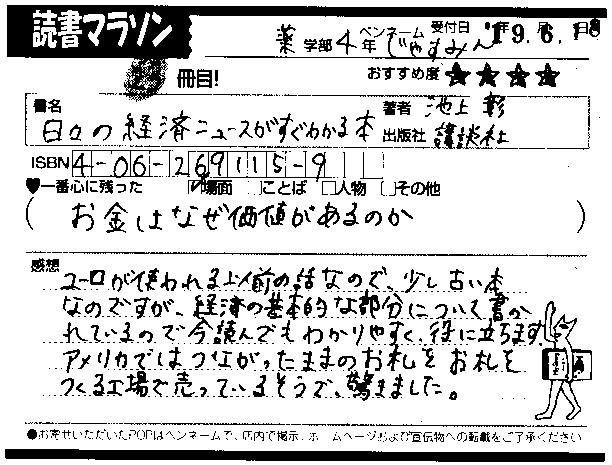 読書マラソン
薬 学部 4 年 ペンネーム じゃすみん 受付日 '19.6.18
冊目!
おすすめ度 ★★★★
書名 日々の経済ニュースがすぐわかる本
著者 池上 彰
出版社 講談社
ISBN 4-06-269115-9
♥一番心に残った ☑場面 □ことば □人物 □その他
(お金はなぜ価値があるのか)
感想
ユーロが使われる以前の話なので、少し古い本
なのですが、経済の基本的な部分について書か
れているので今読んでもわかりやすく、役に立ちます。
アメリカではつながったままのお札をお札を
つくる工場で売っているそうで、驚きました。
●お寄せいただいたPOPはペンネームで、店内で掲示、ホームページおよび宣伝物への転載をご了承ください